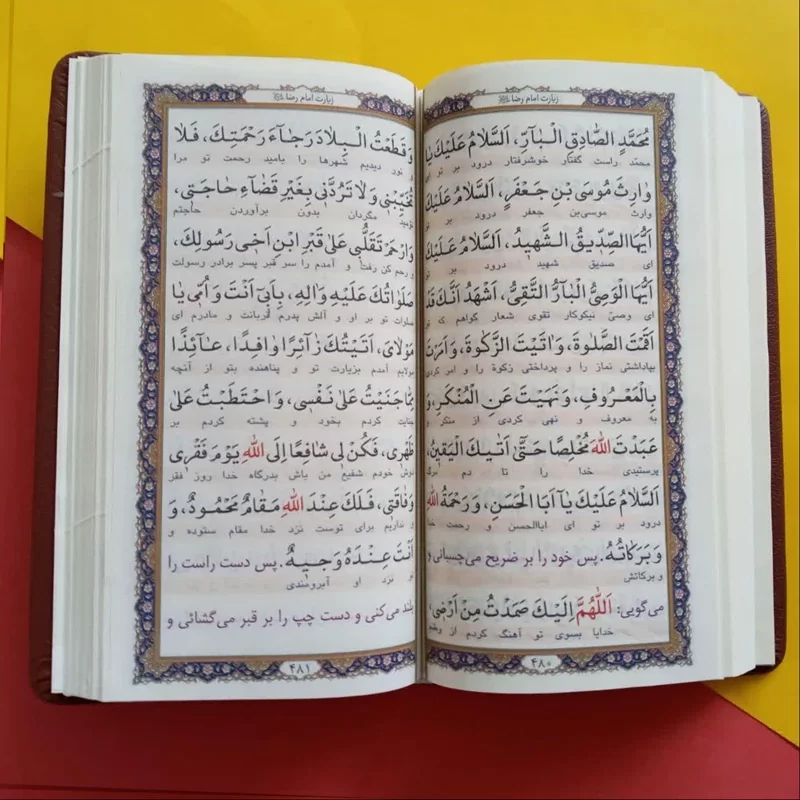 زیارت امام رضا
مُحَمَّدٍ الصّٰادِقِ الْبٰآرِّ، اَلسَّلامُ عَلَیْكَ یٰا
محمّد راست گفتار خوشرفتار درود بر تو ای
وٰارِثَ مُوسَی بْنِ جَعْفَرٍ، اَلسَّلامُ عَلَیْكَ
وارث موسی‌بن جعفر درود بر تو
اَیُّهَا الصِّدّیقُ الشَّهیدُ، اَلسَّلامُ عَلَیْكَ
ای صدیق شهید درود بر تو
اَیُّهَا الْوَصِیُّ الْبٰارُّ التَّقِیُّ، اَشْهَدُ اَنَّكَ قَدْ
ای وصیّ نیکوکار تقوی شعار گواهم که تو
اَقَمْتَ الصَّلٰوةَ، وَ اٰتَیْتَ الزَّکٰوةَ، وَ اَمَرْتَ
بپاداشتی نماز را و پرداختی زکوة را و امر کردی
بِالْمَعْرُوفِ، وَ نَهَیْتَ عَنِ الْمُنْکَرِ، وَ
به معروف و نهی کردی از منکر و
عَبَدْتَ اللهَ مُخْلِصًا حَتّیٰ اَتٰیكَ الْیَقینُ،
پرستیدی خدا را تا دم مرگ
اَلسَّلامُ عَلَیْكَ یٰا اَبَا الْحَسَنِ، وَ رَحْمَةُ اللهِ
درود بر تو ای اباالحسن و رحمت خدا
وَ بَرَکٰاتُهُ. پس خود را بر ضریح می‌چسبانی و
و برکاتش
می‌گویی: اَللّٰهُمَّ اِلَیْكَ صَمَدْتُ مِنْ اَرْضی،
خدایا بسوی تو آهنگ کردم از وطنم
۴۸۰
زیارت امام رضا
وَ قَطَعْتُ الْبِلادَ رَجٰآءَ رَحْمَتِكَ، فَلا
و نور دیدیم شهرها را بامید رحمت تو مرا
تُخَیِّبْنی وَ لا تَرُدَّنی بِغَیْرِ قَضٰاءِ حٰاجَتی،
نومید مگردان بدون برآوردن حاجتم
وَارْحَمْ تَقَلُّبی عَلیٰ قَبْرِ ابْنِ اَخی رَسُولِكَ،
و رحم کن رفت و آمدم را سر قبر پسر برادر رسولت
صَلَوٰاتُكَ عَلَیْهِ وَ اٰلِهِ، بِاَبی اَنْتَ وَ اُمّی یٰا
صلوات تو بر او و آلش پدرم قربانت و مادرم ای
مَوْلایَ، اَتَیْتُكَ زٰآئِرًا وٰافِدًا، عٰآئِذًا
مولایم آمدم بزیارت تو و پناهنده بتو از آنچه
مِمّٰا جَنَیْتُ عَلیٰ نَفْسی، وَ احْتَطَبْتُ عَلیٰ
جنایت کردم بخود و پشته کردم بر
ظَهْری، فَکُنْ لی شافِعًا اِلَی اللهِ یَوْمَ فَقْری
دوش خودم شفیع من باش بدرگاه خدا روز فقر
وَ فٰاقَتی، فَلَكَ عِنْدَ اللهِ مَقٰامٌ مَحْمُودٌ، وَ
و نداریم برای توست نزد خدا مقام ستوده و
اَنْتَ عِنْدَهُ وَجیهٌ. پس دست راست را
تو نزد او آبرومندی
بلند می‌کنی و دست چپ را بر قبر می‌گشائی و
۴۸۱